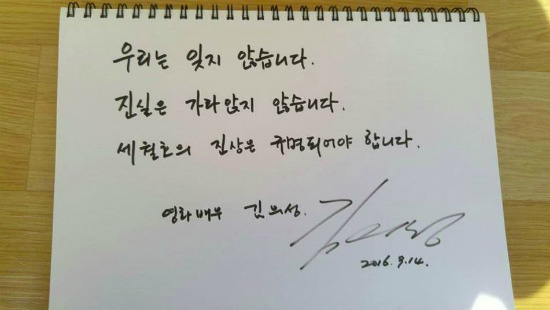 우리는 잊지 않습니다.
진실은 가라앉지 않습니다.
세월호의 진상은 규명되어야 합니다.
영화배우 김의성.
2016. 9. 14.